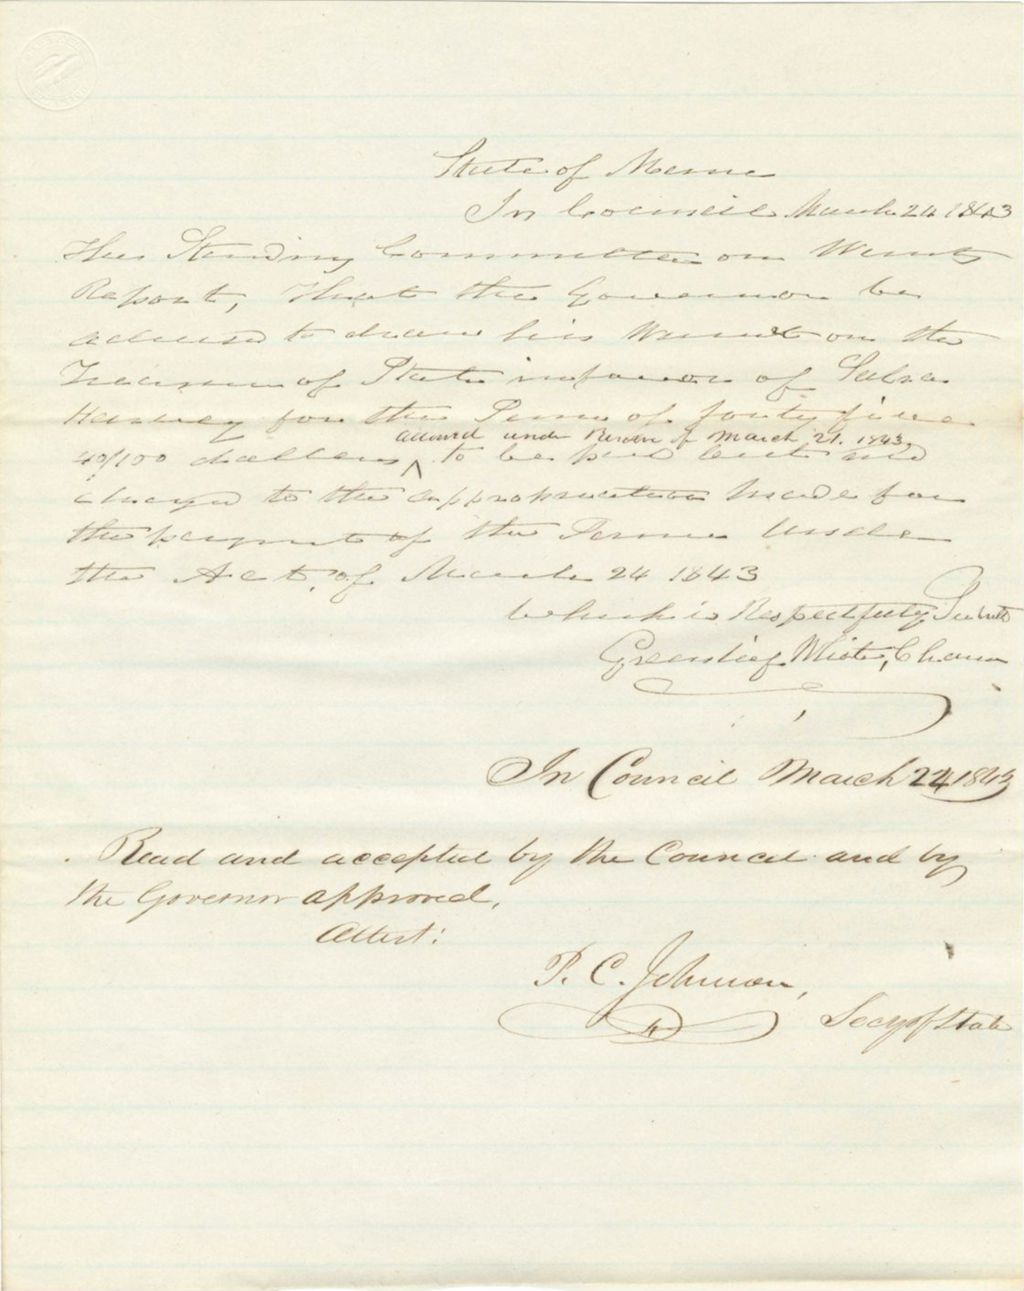 State of Maine
In Council March 24 1843
The Standing Committee on Warrants
Report, That the Governor be
advised to draw his Warrant on the
Treasurer of State in favor of
Harvey for the Sum of forty five
40/100 dollars to be paid out and
allowed under Resolve of March 21. 1843,
charged to the appropriation made for
the payment of the Same Under
the Act, of March 24 1843
Which is Respectfully Submitted
Greenlief White, Chairm
In Council March 24 1843
Read and accepted by the Council and by
the Governor approved.
Attest:
P. C. Johnson,
Secy of State